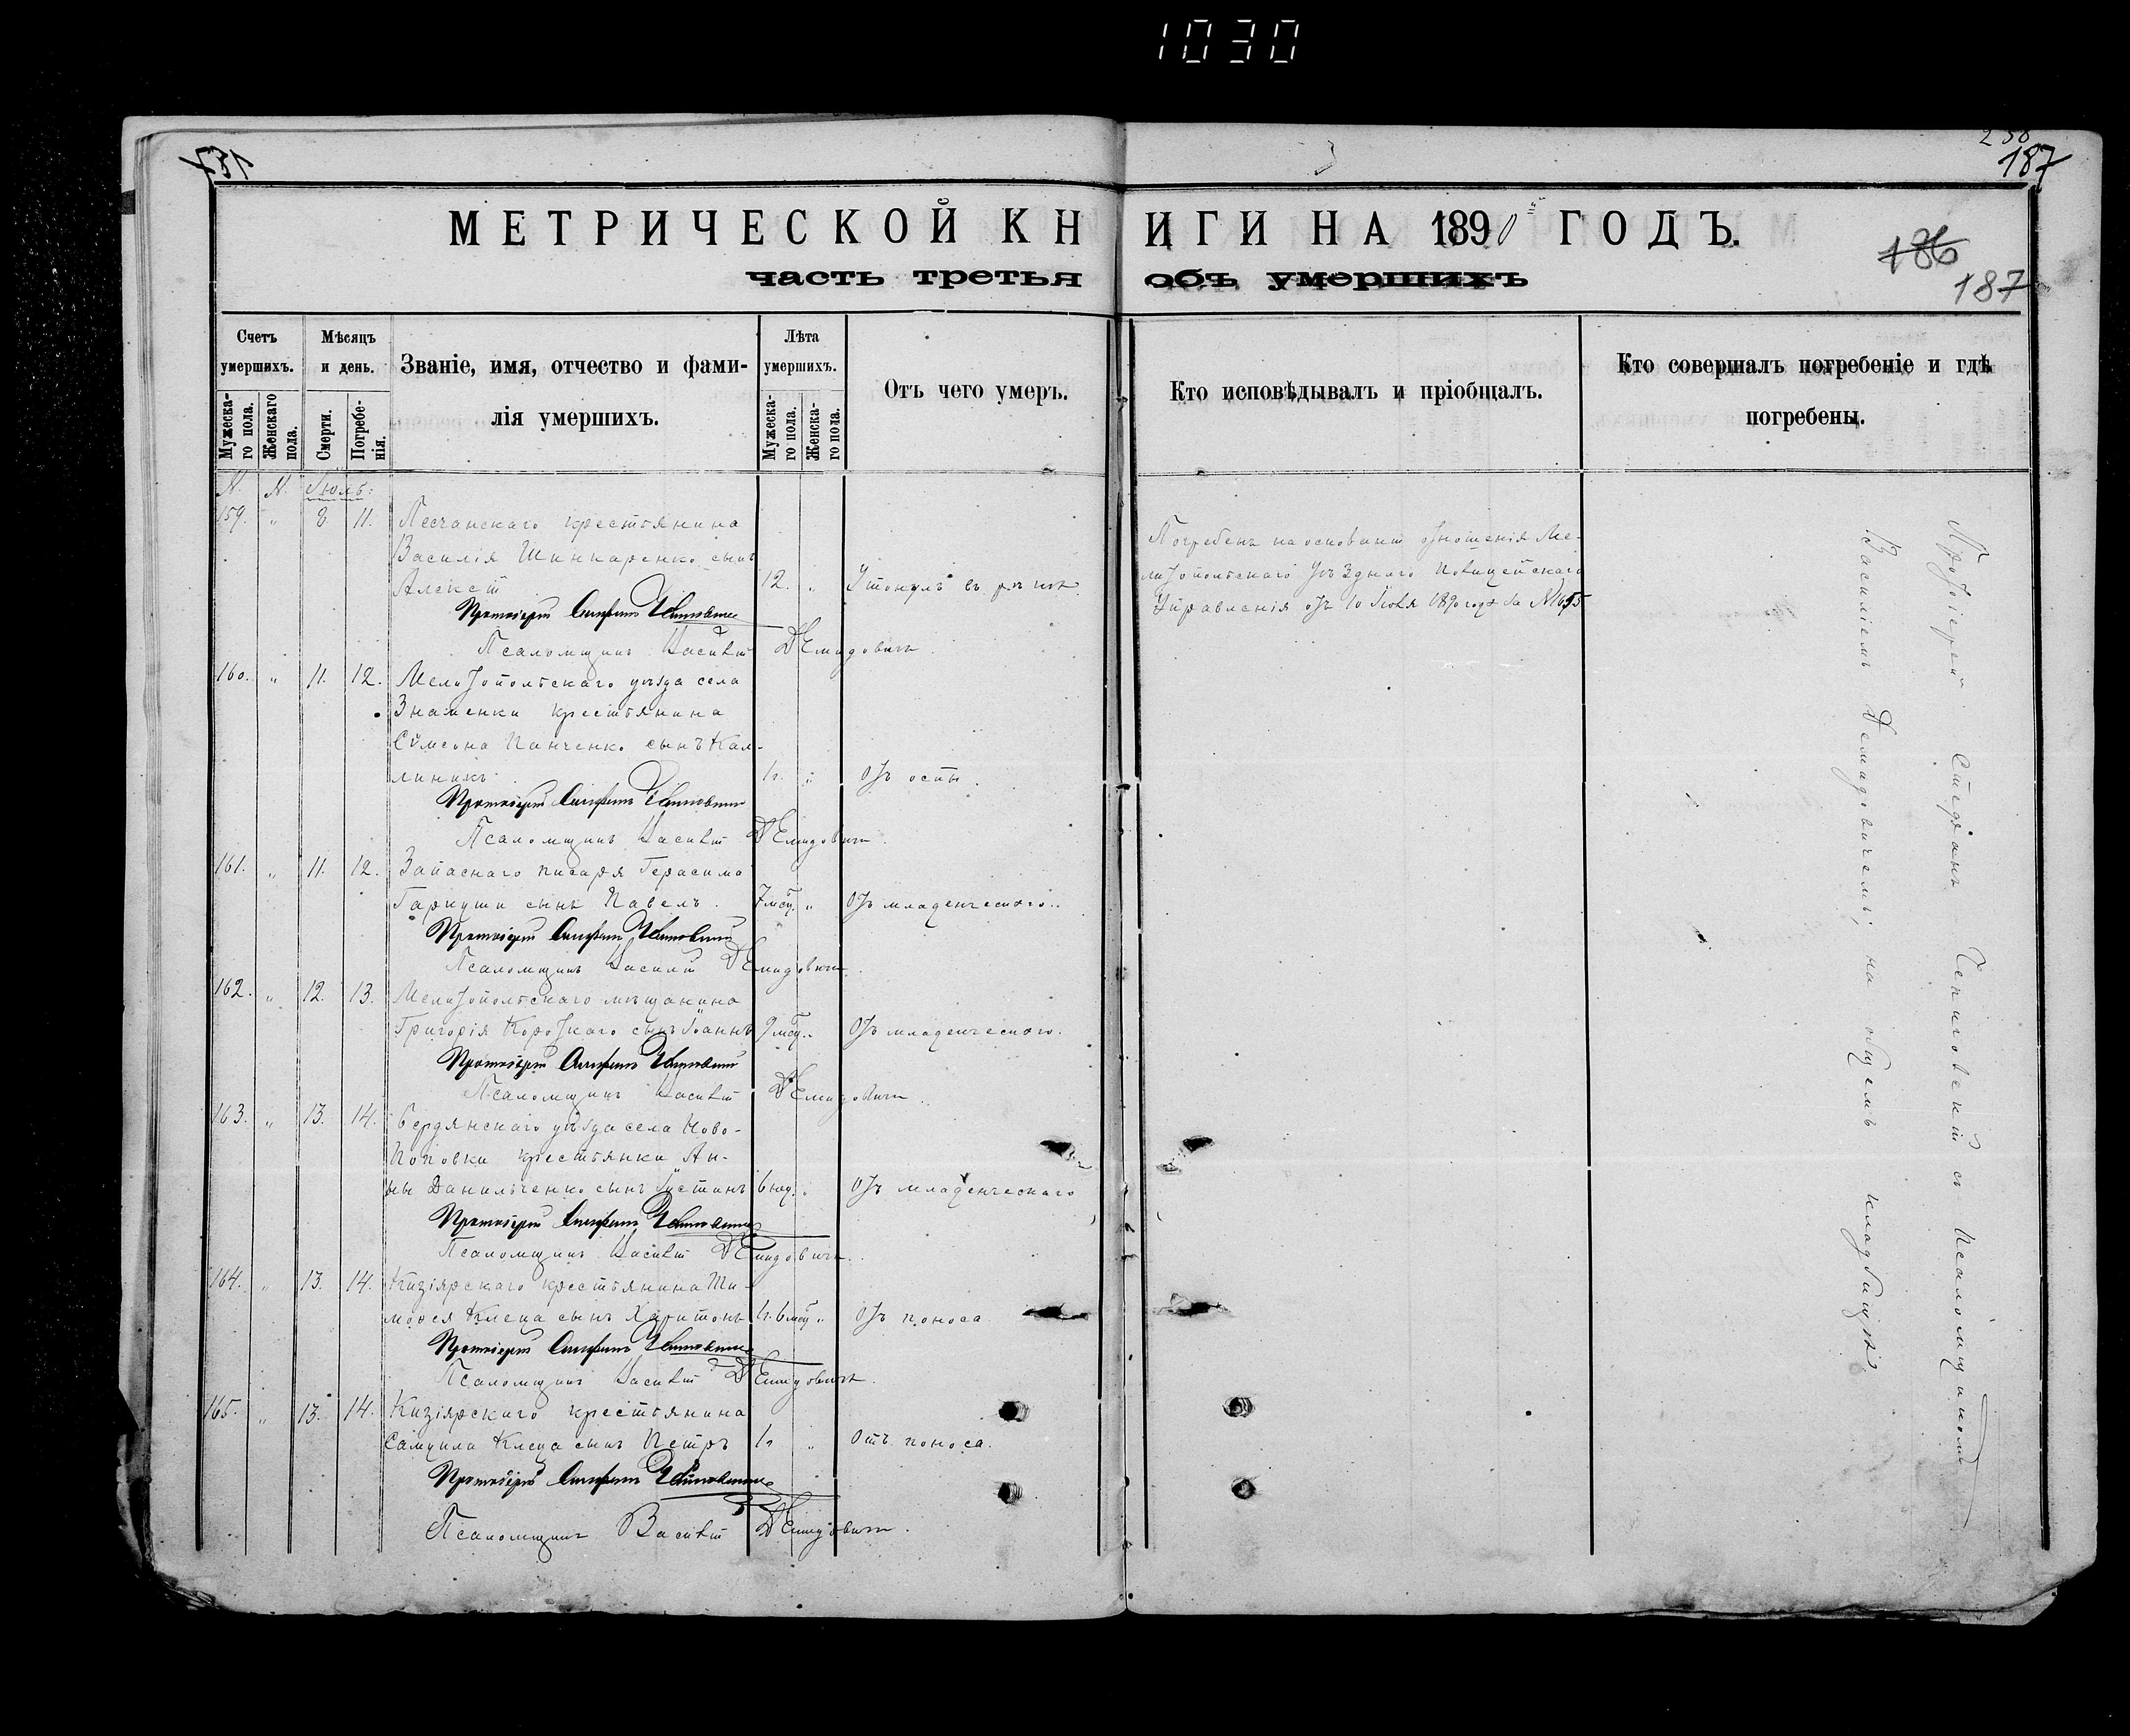 1030
187
187
МЕТРИЧЕСКОЙ КНИГИ НА 1890 ГОДЪ.
часть третья объ умершихъ
186
187
Счетъ умершихъ.
Мѣсяцъ и день.
Званіе, имя, отчество и фами-
лія умершихъ.
Лѣта умершихъ.
Отъ чего умеръ.
Кто исповѣдывалъ и пріобщалъ.
Кто совершалъ погребеніе и гдѣ
погребены.
Мужеска-
го пола.
Женскаго
пола.
Смерти.
Погребе-
нія.
Мужеска-
го пола.
Женска-
го пола.
N. N. Іюль:
159. " 8 11. Песчанскаго крестьянина
Василія Шинкаренко сынъ
Алексій 12. " Утонулъ въ рѣчкѣ.
Погребенъ на основаніи отношенія Ме-
литопольскаго Уѣзднаго Полицейскаго
Управленія отъ 10 Іюля 1890 года за N 1655
Протоіерей Стефанъ
Псаломщикъ Василій Демидовичъ.
160. " 11. 12. Мелитопольскаго уѣзда села
Знаменки крестьянина
Сѵмеона Панченко сынъ Кал-
линикъ. 1г. " Отъ оспы.
Протоіерей Стефанъ
Псаломщикъ Василій Демидовичъ.
161. " 11. 12. Запаснаго писаря Герасима
Гаркуши сынъ Павелъ. 7 мсц. " Отъ младенческаго.
Протоіерей Стефанъ
Псаломщикъ Василій Демидовичъ.
162. " 12. 13. Мелитопольскаго мѣщанина
Григорія Короткаго сынъ Іоаннъ 9 мсц. " Отъ младенческаго.
Протоіерей Стефанъ
Псаломщикъ Василій Демидовичъ.
163. " 13. 14. Бердянскаго уѣзда села Ново-
Поповки крестьянки Ан-
ны Данильченко сынъ Іустинъ 6 " Отъ младенческаго
Протоіерей Стефанъ
Псаломщикъ Василій Демидовичъ.
164. " 13. 14. Кизіярскаго крестьянина Ти-
моѳея Клеца сынъ Харитонъ 1г. 6 мсц " Отъ поноса
Протоіерей Стефанъ
Псаломщикъ Василій Демидовичъ.
165. " 13. 14. Кизіярскаго крестьянина
Самуила Клеца сынъ Петръ 1г " Отъ поноса.
Протоіерей Стефанъ
Псаломщикъ Василій Демидовичъ.
Протоіерей Стефанъ съ Псаломщикомъ
Василіемъ Демидовичемъ; на общемъ кладбищѣ.